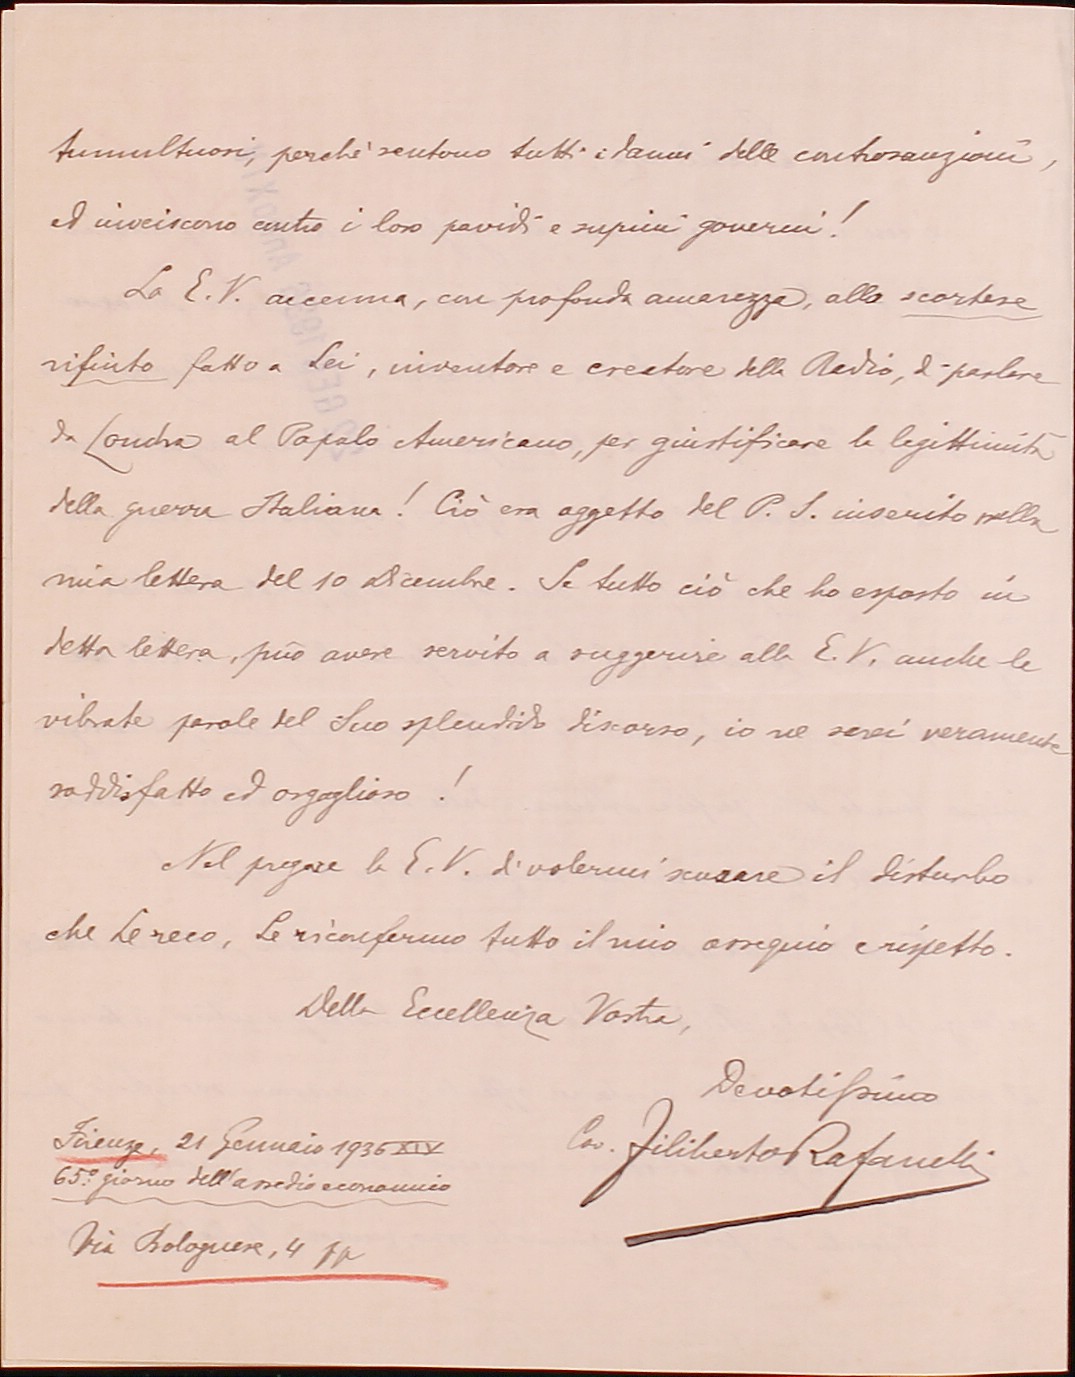 tumultuosi, perchè sentono tutti i danni delle controsanzioni,
ed inveiscono contro i loro pavidi e supini governi!
La E. V. accenna, con profonda amarezza, allo scortese
rifiuto fatto a Lei, inventore e creatore della Radio, di parlare
da Londra al Popolo Americano, per giustificare la legittimità
della guerra Italiana! Ciò era oggetto del P. S. inserito nella
mia lettera del 10 Dicembre. Se tutto ciò che ho esposto in
detta lettera, può avere servito a suggerire alla E. V. anche le
vibrate parole del Suo splendido discorso, io ne sarei veramente
soddisfatto ed orgoglioso!
Nel pregare la E. V. di volermi scusare il disturbo
che Le reco, Le riconfermo tutto il mio ossequio e rispetto.
Della Eccellenza Vostra,
Devotissimo
Cav. Filiberto Rafanelli
Firenze, 21 Gennaio 1936 XIV
65º giorno dell'assedio economico
Via Bolognese, 4